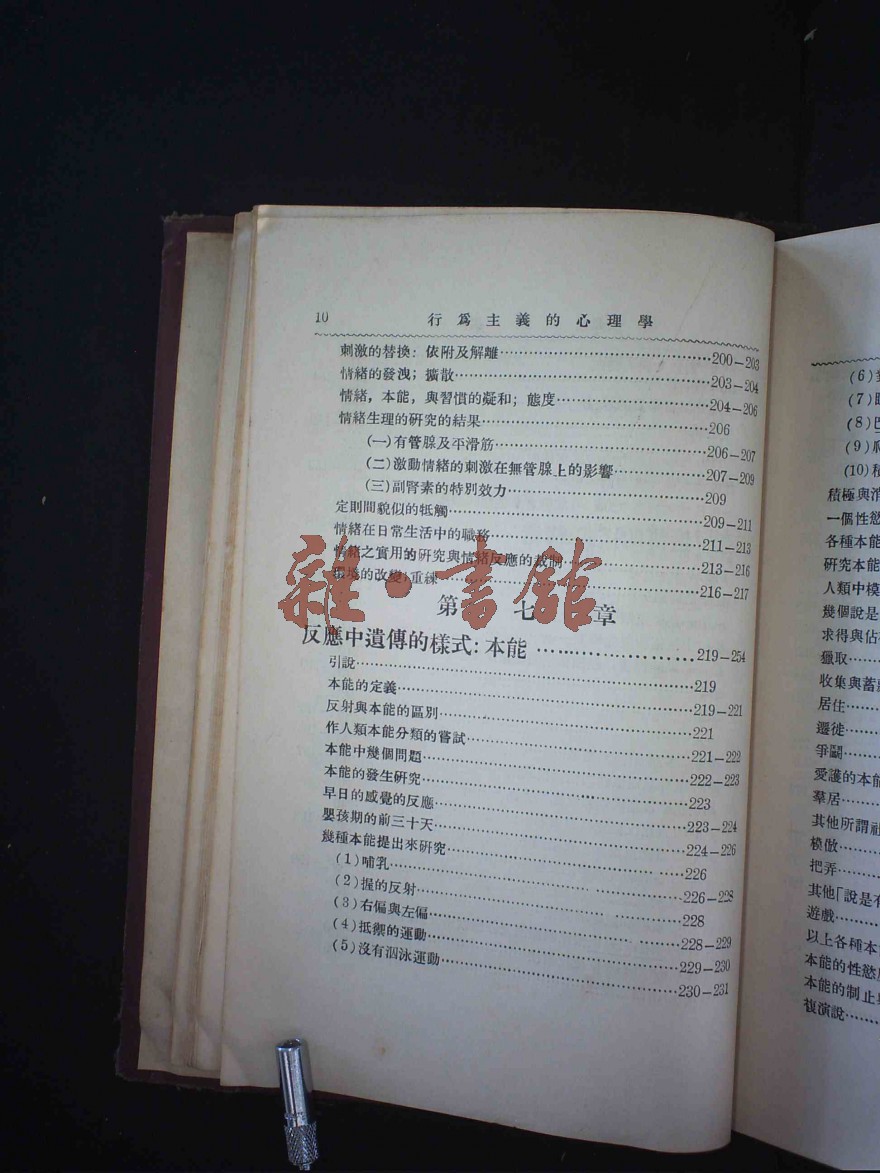 10 行爲主義的心理學
刺激的替換：依附及解離……200—203
情緒的發洩；擴散……203—204
情緒，本能，與習慣的凝和；態度……204—206
情緒生理的研究的結果……206
(一)有管腺及平滑筋……206—207
(二)激動情緒的刺激在無管腺上的影響……207—209
(三)副腎素的特別效力……209
定則間貌似的牴觸……209—211
情緒在日常生活中的職務……211—213
情緒之實用的研究與情緒反應的裁制……213—216
環境的改變；重練……216—217
第七章
反應中遺傳的樣式：本能……219—254
引說……219
本能的定義……219—221
反射與本能的區別……221
作人類本能分類的嘗試……221—222
本能中幾個問題……222—223
本能的發生研究……223
早日的感覺的反應……223—224
嬰孩期的前三十天……224—226
幾種本能提出來研究……226
(1)哺乳……226—228
(2)握的反射……228
(3)右偏與左偏……228—229
(4)抵禦的運動……229—230
(5)沒有泅泳運動……230—231
雜·書館
(6)
(7)
(8)
(9)
(10)積
積極與消
一個性慾
各種本能
研究本能
人類中模
幾個說是
求得與佔
獵取……
收集與蓄
居住……
遷徙……
爭鬭……
愛護的本能
羣居……
其他所謂
模倣……
把弄……
其他「說是有
遊戲……
以上各種本
本能的性慾
本能的制止
複演說……